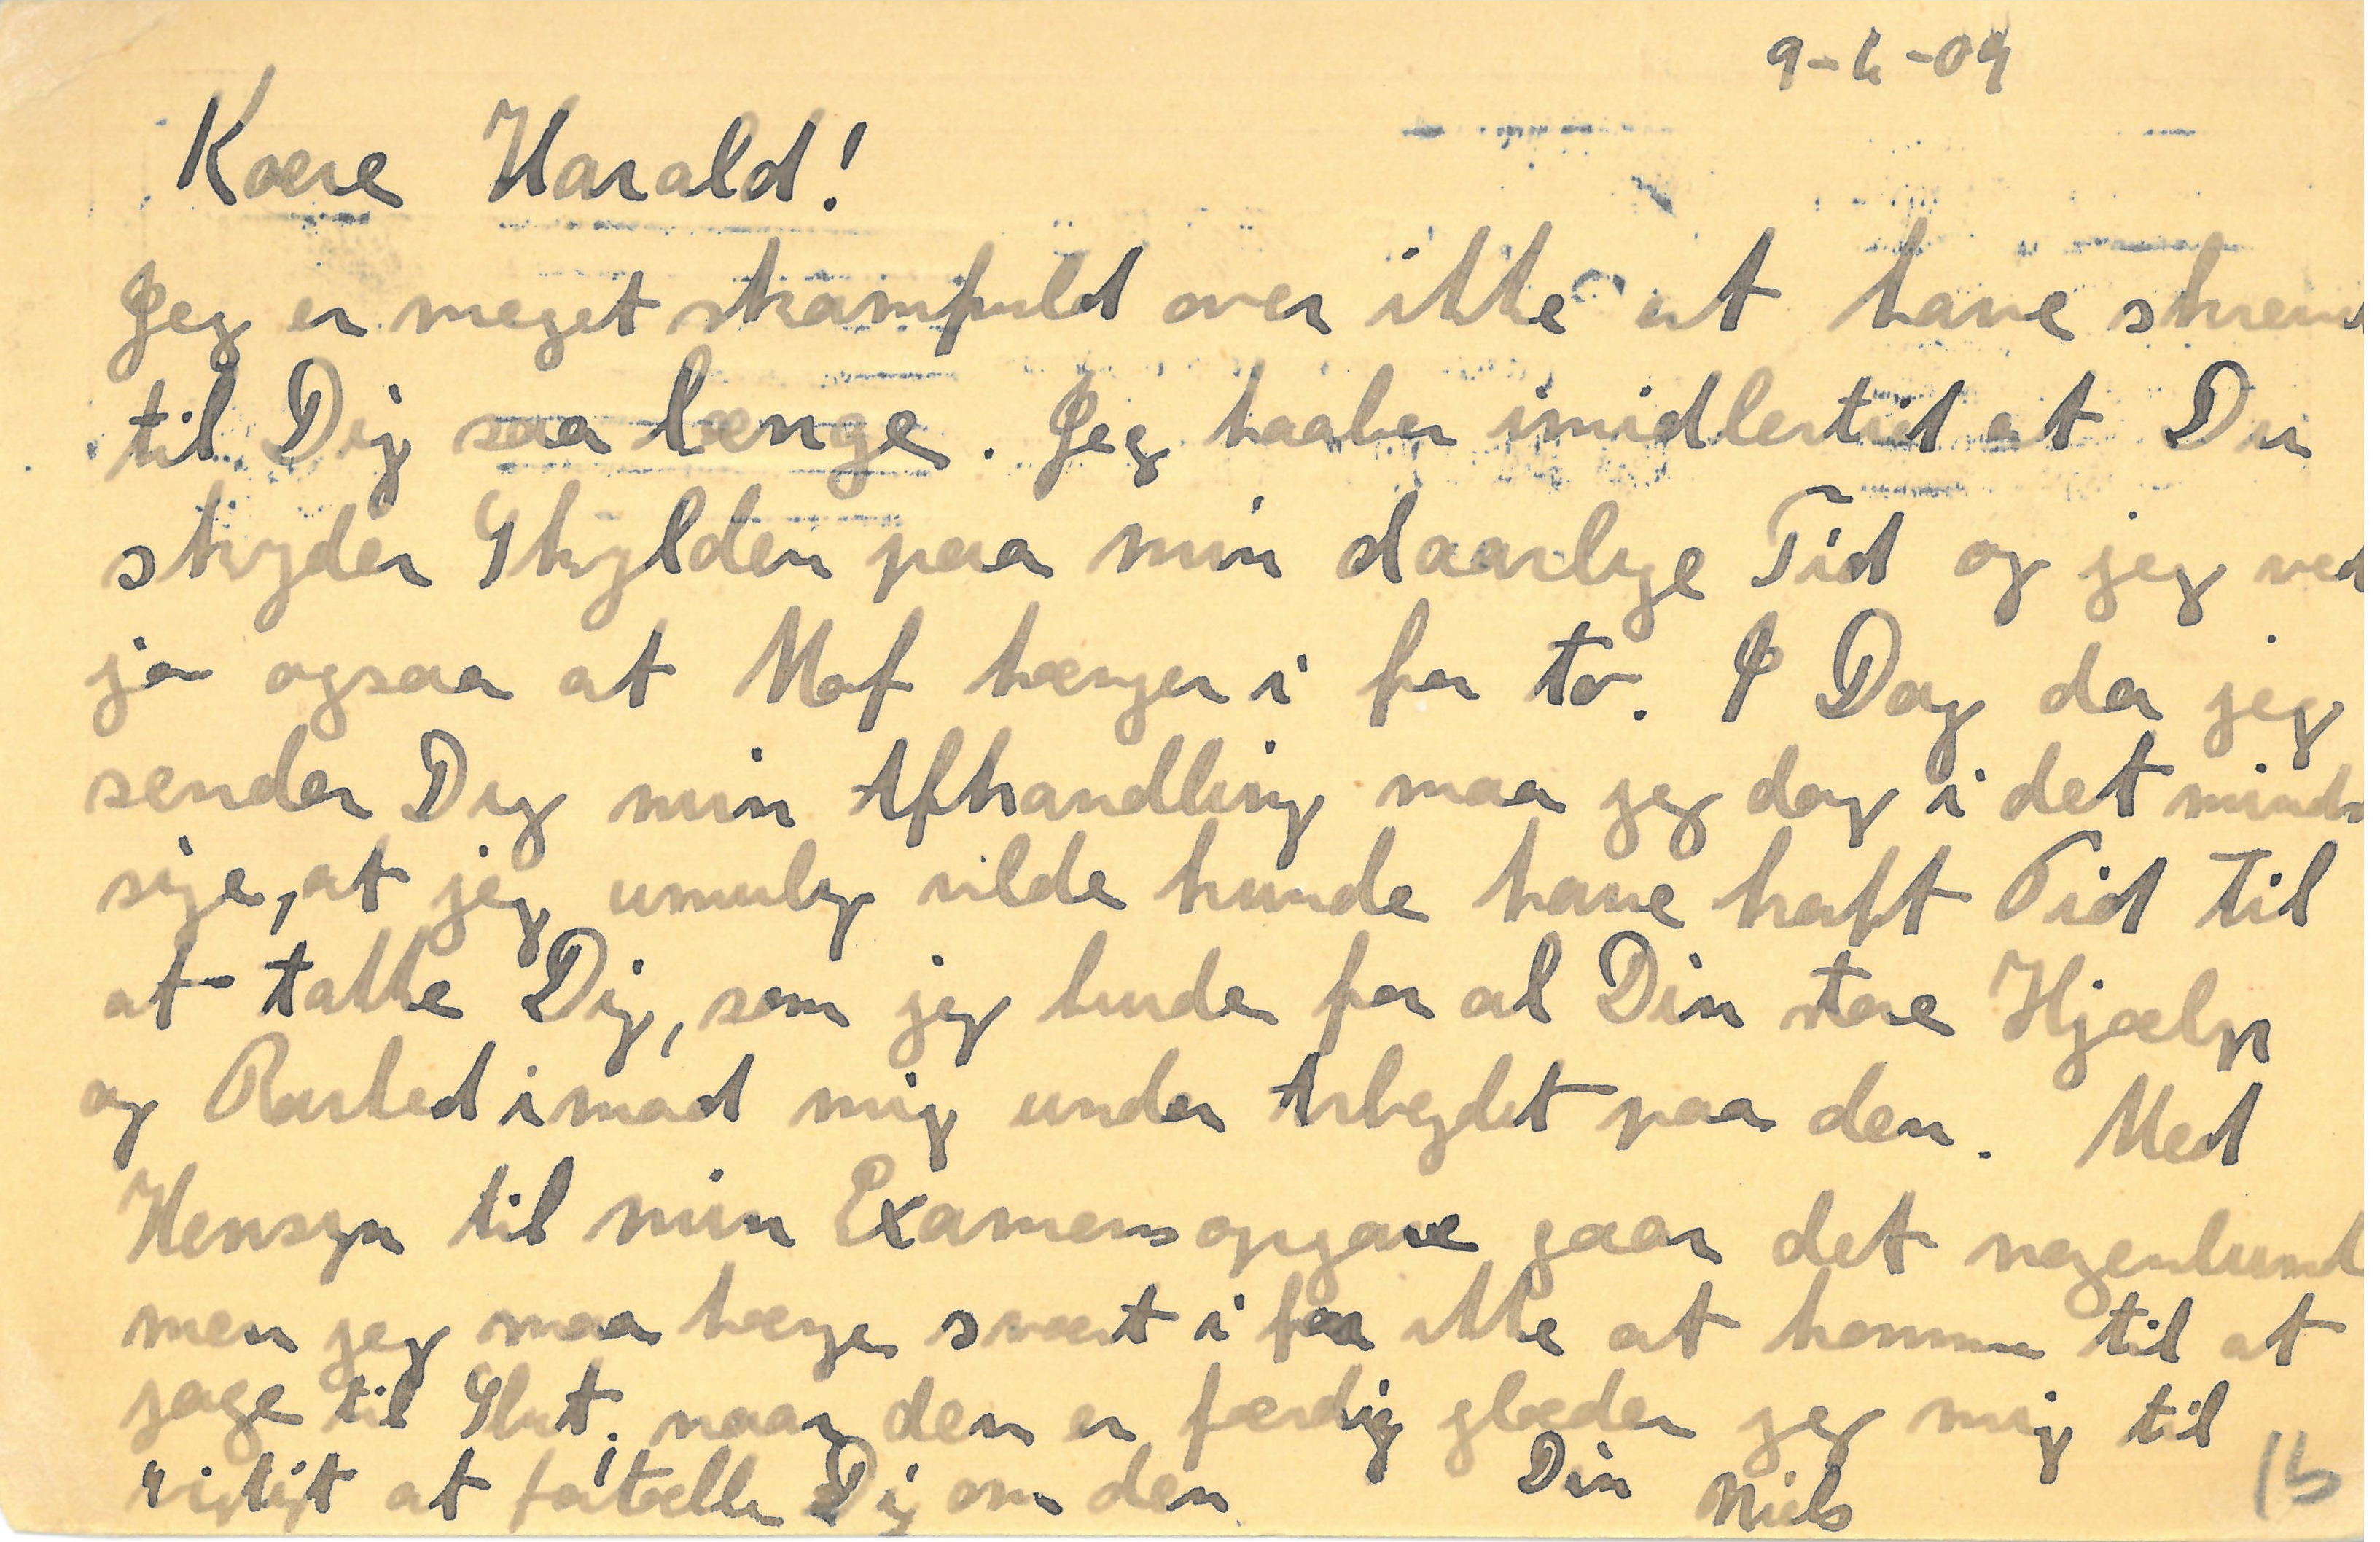 9-6-09
Kære Harald!
Jeg er meget skamfuld over ikke at have skrevet
til Dig saa længe. Jeg haaber imidlertid at Du
skyder Skylden paa min daarlige Tid og jeg ved
jo ogsaa at Mof hænger i for to. I Dag da jeg
sender Dig min Afhandling maa jeg dog i det minds
sige, at jeg umulig vilde kunde have haft Tid til
at takke Dig, som jeg burde for al Din store Hjælp
og Rarhed imod mig under Arbejdet paa den. Med
Hensyn til min Examensopgave gaar det nogenlund
men jeg maa hænge svært i for ikke at komme til at
jage til Slut. naar den er færdig glæder jeg mig til
rigtigt at fortælle Dig om den.
Din Niels
15